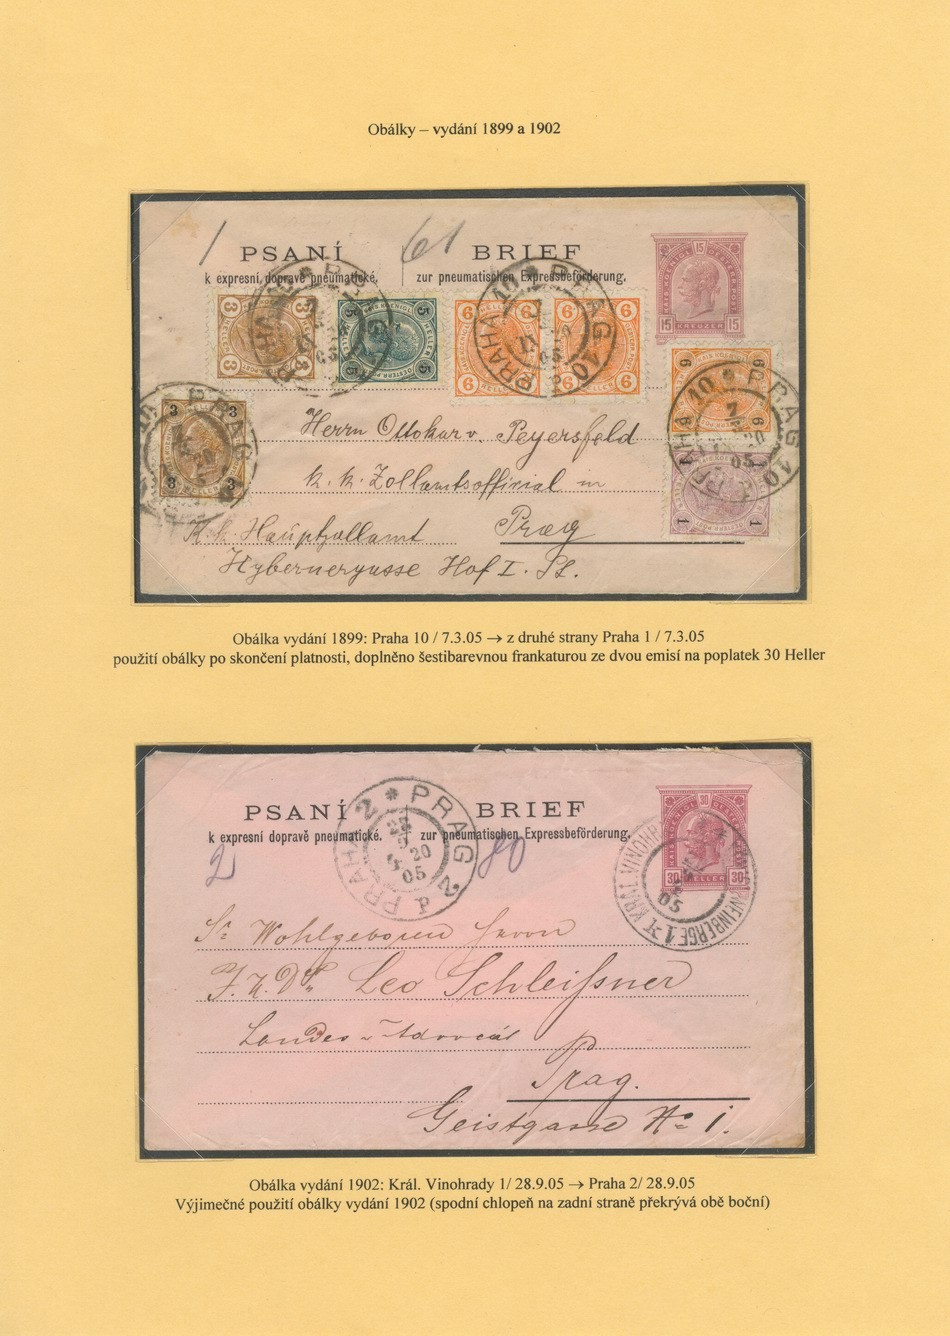 Obálky – vydání 1899 a 1902
1 61
PSANÍ BRIEF
k expresní dopravě pneumatické. zur pneumatischen Expressbeförderung.
15
15 KREUZER 15
3 3
3 3
5 5
5 5
6 6
HELLER
6 6
6 6
6 6
PRAHA 10 * PRAG 10
6 6
6 6
PRAHA 10 * PRAG 10
7
20
05
3 3
3 3
PRAG
1 1
Herrn Ottokar v. Peyersfeld
k. k. Zollamtsoffizial in
K. k. Hauptzollamt Prag
Hybernergasse Hof I. St.
Obálka vydání 1899: Praha 10 / 7.3.05 → z druhé strany Praha 1 / 7.3.05
použití obálky po skončení platnosti, doplněno šestibarevnou frankaturou ze dvou emisí na poplatek 30 Heller
PSANÍ BRIEF
k expresní dopravě pneumatické. zur pneumatischen Expressbeförderung.
2 80
PRAHA 2 * PRAG 2
20
05
P
30
30 HELLER 30
KRÁL. VINOHR WEINBERGE 1
05
Sr Wohlgeboren Herrn
J. U. Dr. Leo Schleißner
Landes-Advocat
Prag.
Geistgasse No 1.
Obálka vydání 1902: Král. Vinohrady 1/ 28.9.05 → Praha 2/ 28.9.05
Výjimečné použití obálky vydání 1902 (spodní chlopeň na zadní straně překrývá obě boční)